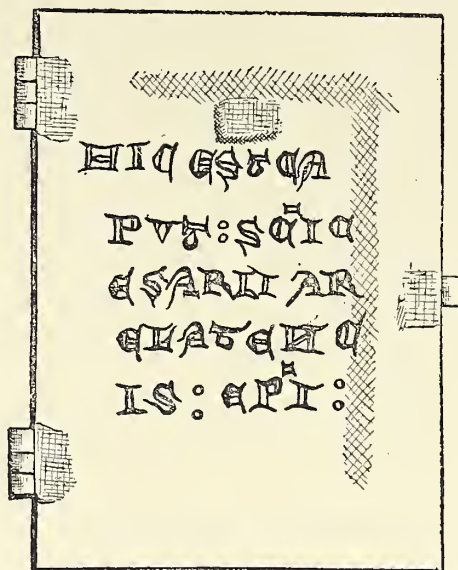 HIC EST CA
PVT : SC̄I C
ESARII AR
ELATENC
IS : EP̄I :